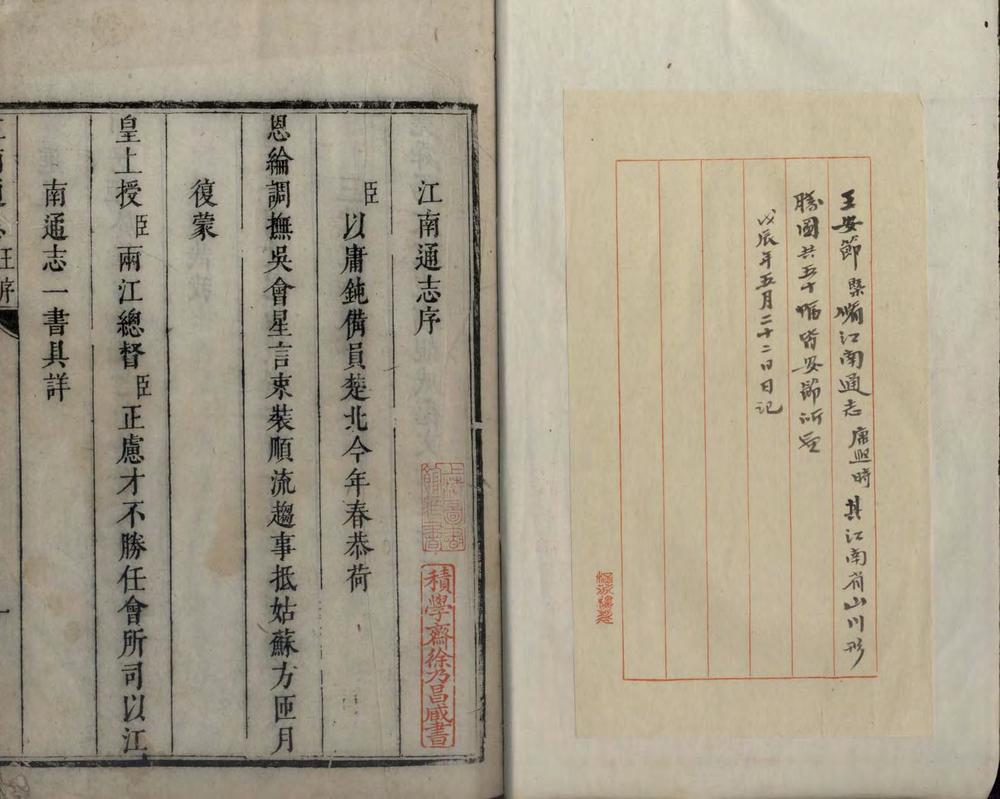 王安節槩繪江南通志康熙時其江南省山川形
勝圖共五十幅皆安節所
戊辰年五月二十二日日記
江南通志序
臣以庸鈍備員楚北今年春恭荷
恩綸調撫吳會星言束裝順流趨事抵姑蘇方匝月
復蒙
皇上授臣兩江總督臣正慮才不勝任會所司以江
南通志一書具詳
積學齋徐乃昌臧書